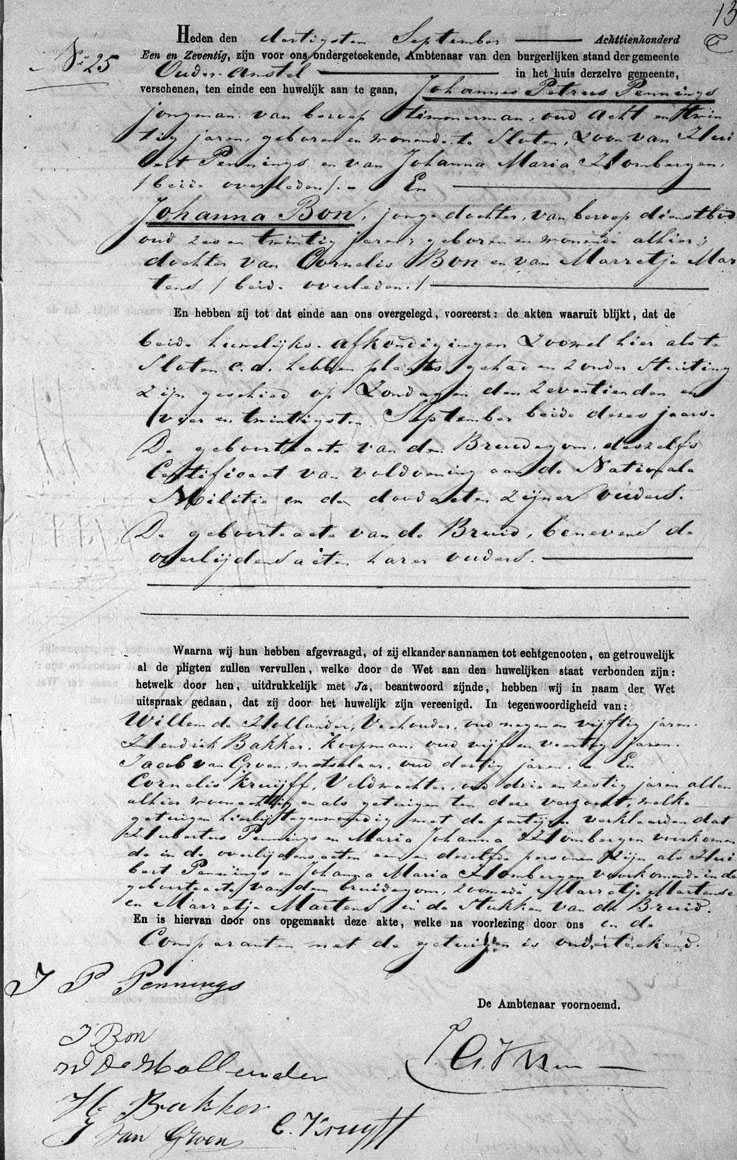 13
Heden den dertigsten September Achttienhonderd
No 25
Een en Zeventig, zijn voor ons ondergeteekende, Ambtenaar van den burgerlijken stand der gemeente
Ouder-Amstel in het huis derzelve gemeente,
verschenen, ten einde een huwelijk aan te gaan, Johannes Petrus Pennings
jongman van beroep timmerman, oud acht en twin
tig jaren, geboren en wonende te Sloten, Zoon van Hui
bert Pennings en van Johanna Maria Hombergen,
/beide overleden/. - En
Johanna Bon, jonge dochter, van beroep dienstbod
oud zes en twintig jaren, geboren en wonende alhier;
dochter van Cornelis Bon en van Marretje Mar
tens /beide overleden:/
En hebben zij tot dat einde aan ons overgelegd, vooreerst: de akten waaruit blijkt, dat de
beide huwelijks-afkondigingen zoowel hier als te
Sloten c.a. hebben plaats gehad en zonder stuiting
zijn geschied op Zondagen den zeventienden en
vier en twintigsten September beide dezes jaars.
De geboorteacte van den Bruidegom, deszelfs
Certificaat van voldoening aan de Nationale
Militie en de doodacten zijner ouders.
De geboorteacte van de Bruid, benevens de
overlijdensacten harer ouders.
Waarna wij hun hebben afgevraagd, of zij elkander aannamen tot echtgenooten, en getrouwelijk
al de pligten zullen vervullen, welke door de Wet aan den huwelijken staat verbonden zijn:
hetwelk door hen, uitdrukkelijk met Ja, beantwoord zijnde, hebben wij in naam der Wet
uitspraak gedaan, dat zij door het huwelijk zijn vereenigd. In tegenwoordigheid van:
Willem de Hollander, Veehouder, oud negen en vijftig jaren.
Hendrik Bakker, koopman, oud vijf en veertig jaren.
Jacob van Groen, metselaar, oud dertig jaren. En
Cornelis Kruijff, Veldwachter, oud drie en zestig jaren allen
alhier woonachtig en als getuigen ten deze verzocht, welke
getuigen hierbij tegenwoordig met de partijen verklaarden dat
Hubertus Pennings en Maria Johanna Hombergen voorkomen
de in de overlijdensacten een en dezelfde personen zijn als Hui
bert Pennings en Johanna Maria Hombergen voorkomende in de
geboorteacte van den bruidegom, zoomede Marretje Martense
en Marretje Martens in de stukken van de Bruid.
En is hiervan door ons opgemaakt deze akte, welke na voorlezing door ons en de
Comparanten met de getuigen is onderteekend.
J P Pennings
De Ambtenaar voornoemd.
J Bon
W De Hollander
H Bakker
J Van Groen C. Kruyff